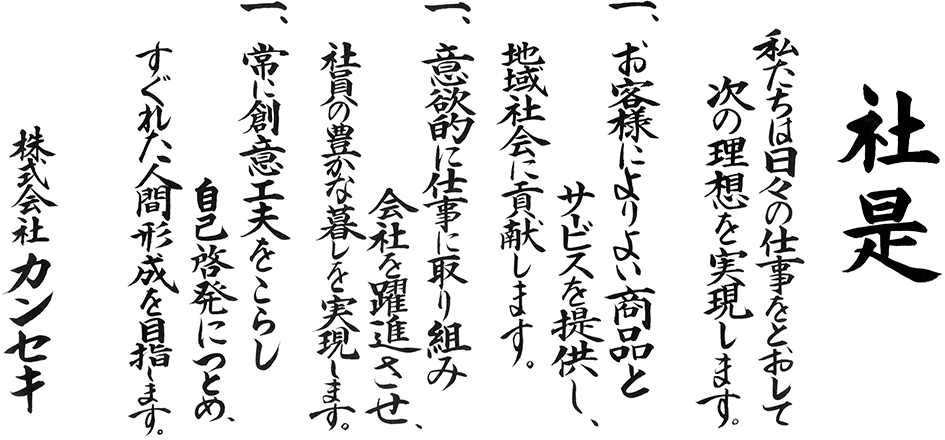 社是
私たちは日々の仕事をとおして
次の理想を実現します。
一、お客様によりよい商品と
サービスを提供し、
地域社会に貢献します。
一、意欲的に仕事に取り組み
会社を躍進させ、
社員の豊かな暮しを実現します。
一、常に創意工夫をこらし
自己啓発につとめ、
すぐれた人間形成を目指します。
株式会社カンセキ